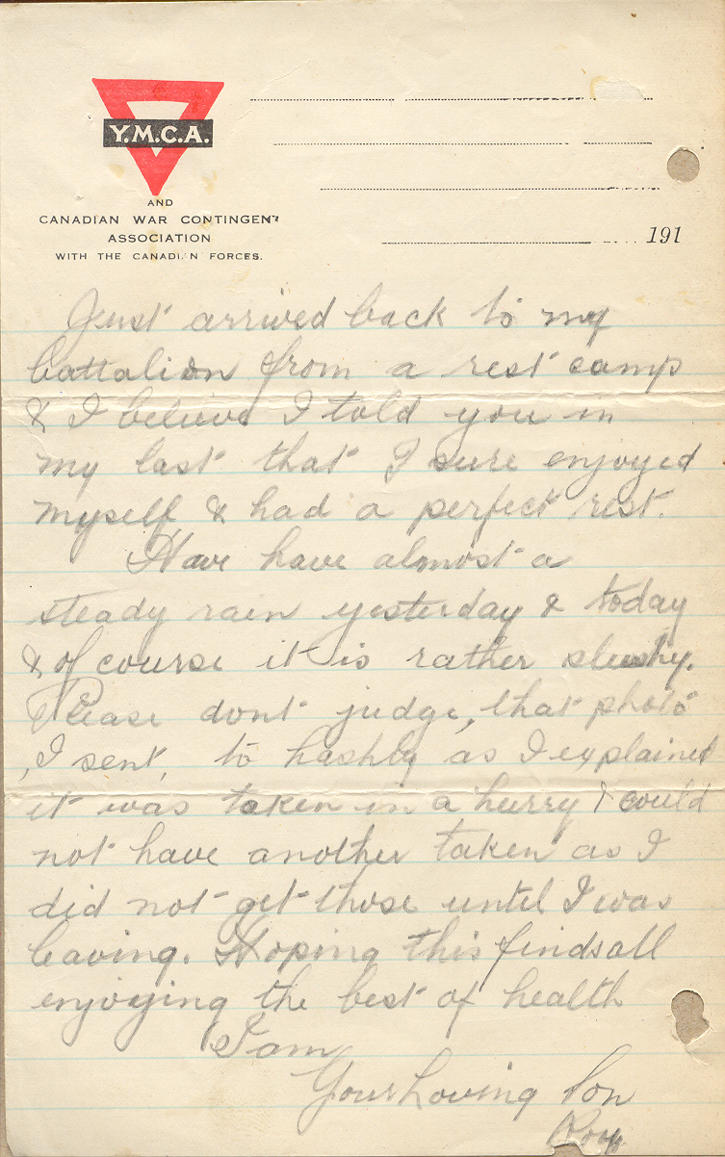 Y.M.C.A.
AND
CANADIAN WAR CONTINGENT
ASSOCIATION
WITH THE CANADIAN FORCES.
191
Just arrived back to my
battalion from a rest camp
& I believe I told you in
my last that I sure enjoyed
myself & had a perfect rest.
Have have almost a
steady rain yesterday & today
& of course it is rather slushy.
Please dont judge, that photo
, I sent, to hashly as I explained
it was taken in a hurry & could
not have another taken as I
did not get those until I was
leaving. Hoping this finds all
enjoying the best of health
I am
Your Loving Son
Roy